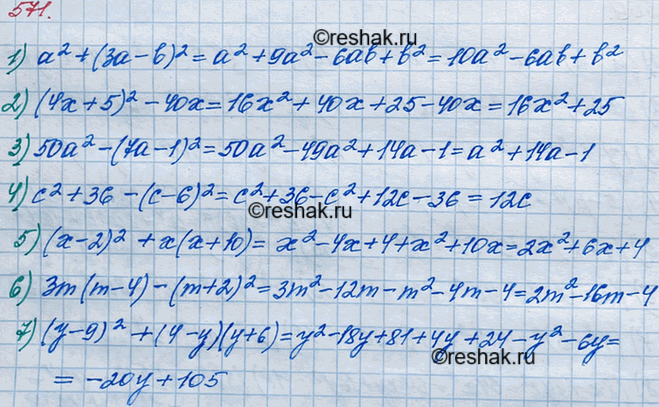 571.
©reshak.ru
1) a² + (3a - b)² = a² + 9a² - 6ab + b² = 10a² - 6ab + b²
2) (4x + 5)² - 40x = 16x² + 40x + 25 - 40x = 16x² + 25
3) 50a² - (7a - 1)² = 50a² - 49a² + 14a - 1 = a² + 14a - 1
4) c² + 36 - (c - 6)² = c² + 36 - c² + 12c - 36 = 12c
©reshak.ru
5) (x - 2)² + x(x + 10) = x² - 4x + 4 + x² + 10x = 2x² + 6x + 4
6) 3m(m - 4) - (m + 2)² = 3m² - 12m - m² - 4m - 4 = 2m² - 16m - 4
7) (y - 9)² + (4 - y)(y + 6) = y² - 18y + 81 + 4y + 24 - y² - 6y =
©reshak.ru
= -20y + 105